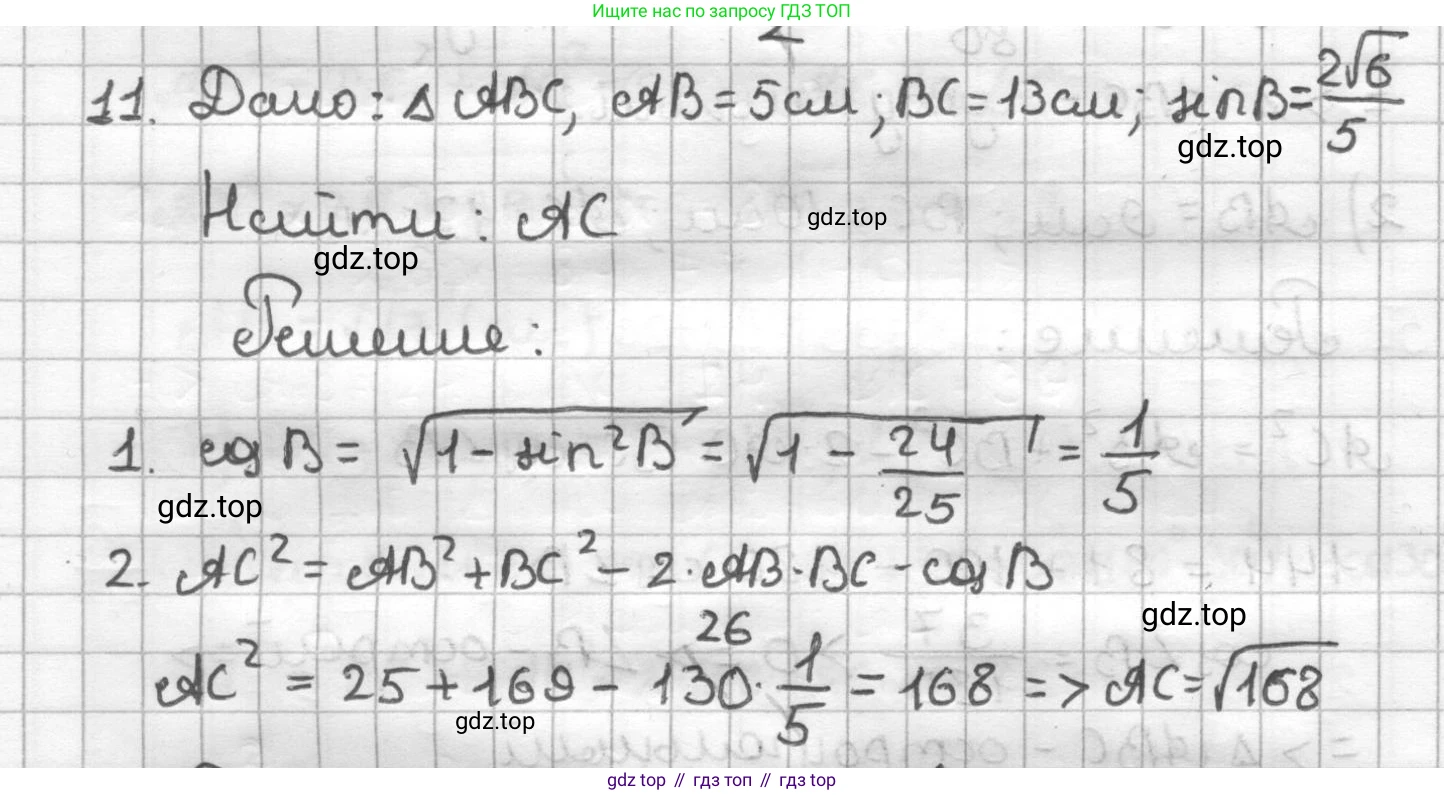 Ищите нас по запросу ГДЗ ТОП
11. Дано: Δ ABC, AB = 5 см; BC = 13 см; sin B = 2√6/5
gdz.top
Найти: AC
gdz.top
gdz.top
Решение:
1. cos B = √(1 - sin²B) = √(1 - 24/25) = 1/5
gdz.top
2. AC² = AB² + BC² - 2·AB·BC - cos B
gdz.top
26
AC² = 25 + 169 - 130 · 1/5 = 168 => AC = √168
gdz.top
gdz top // гдз топ // гдз top